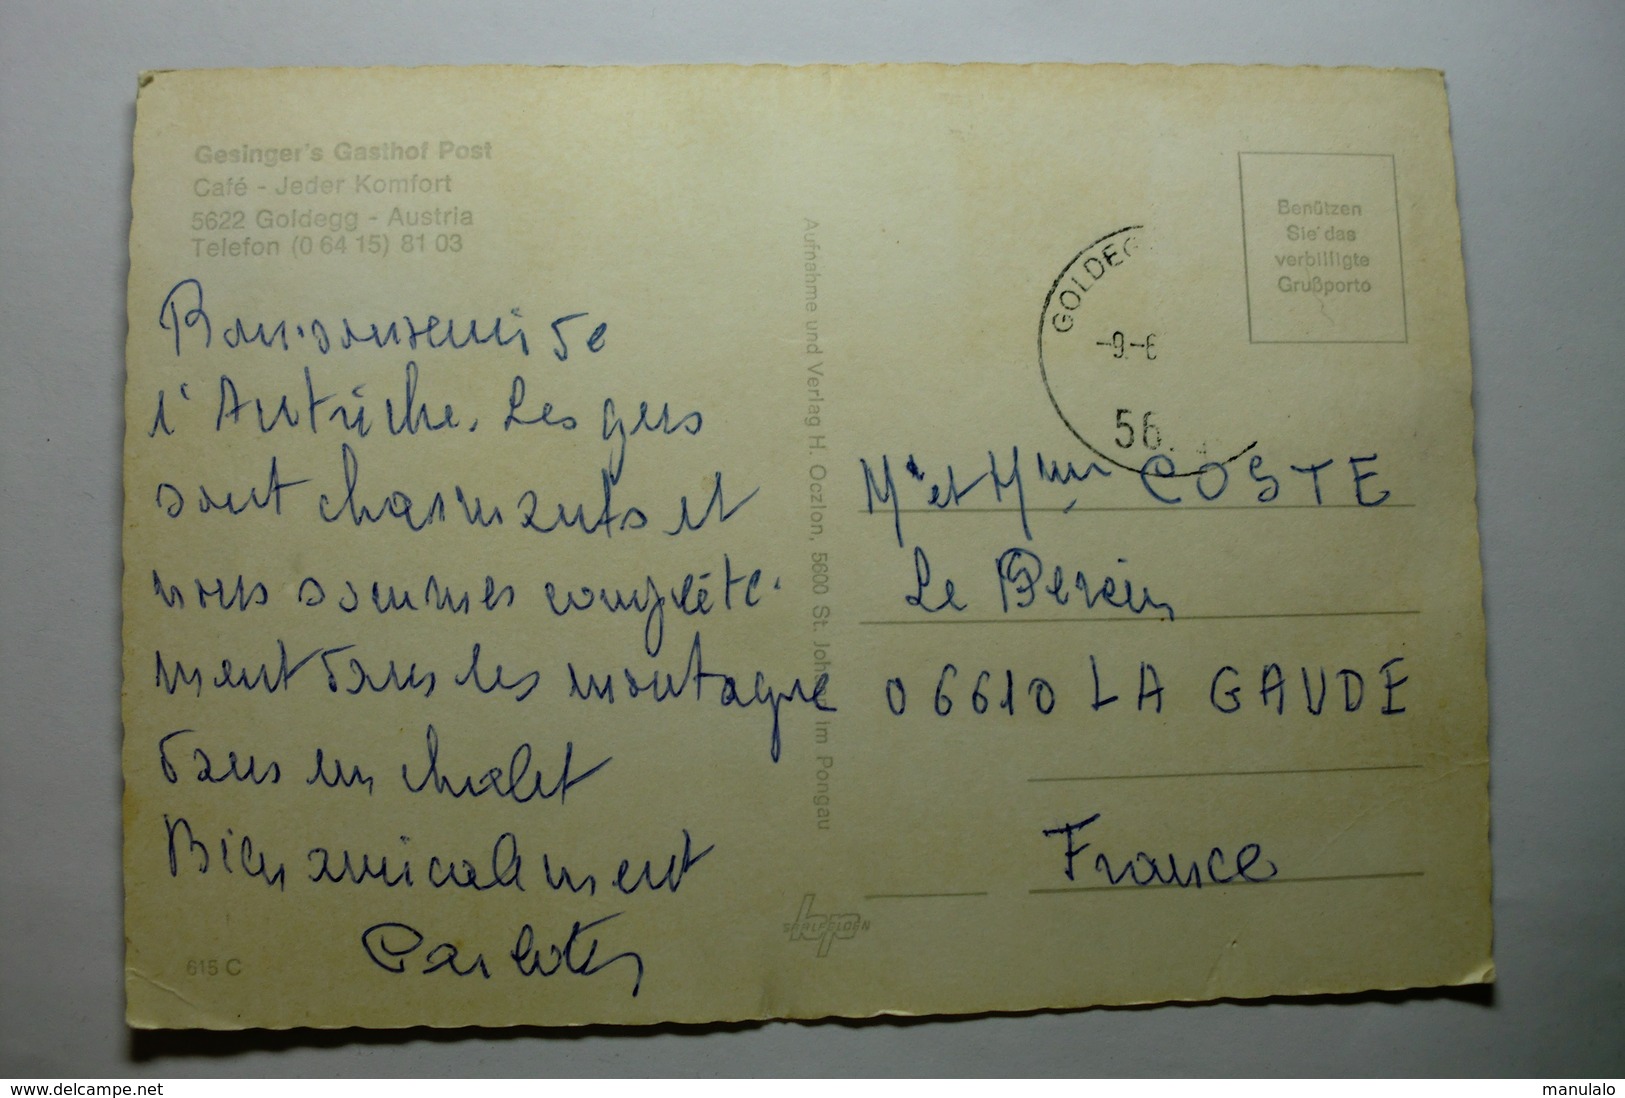 Gesinger's Gasthof Post
Café - Jeder Komfort
5622 Goldegg - Austria
Telefon (0 64 15) 81 03
Bon souvenir de
l'Autriche. Les gens
sont charmants et
nous sommes complète-
ment dans les montagne
dans un chalet
Bien amicalement
615 C
Aufnahme und Verlag H. Oczlon, 5600 St. Joh im Pongau
SAALFELDEN
GOLDEG
-9.-6
56
Benützen
Sie das
verbilligte
Grußporto
Mr et Mme COSTE
Le
06610 LA GAUDE
France
www.delcampe.net
manulalo